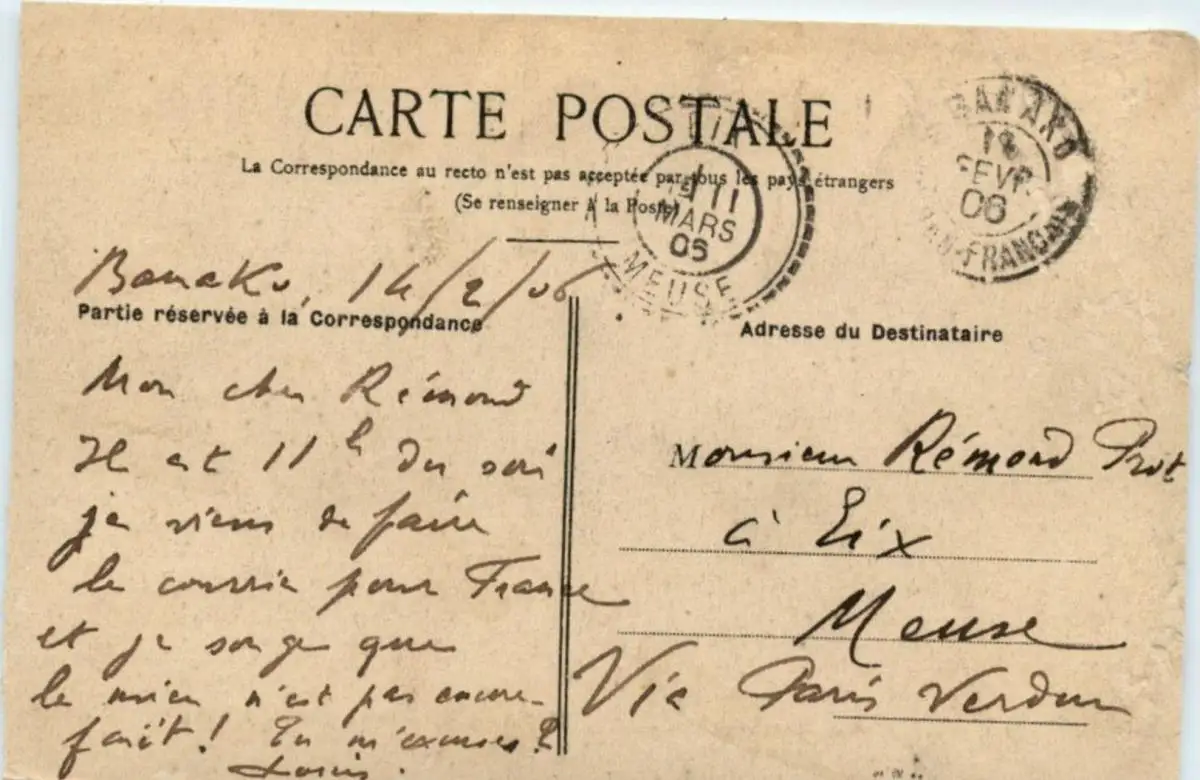 CARTE POSTALE
La Correspondance au recto n'est pas acceptée par tous les pays étrangers
(Se renseigner à la Poste)
BAMAKO
18
FEVR
06
FRANÇAIS
11
MARS
06
MEUSE
Bamako, 14/2/06
Partie réservée à la Correspondance
Mon cher Rémond
Il est 11h du soir
je viens de faire
le courrier pour France
et je songe que
le mien n'est pas encore
fait! Tu m'excuses?
Louis.
Adresse du Destinataire
Monsieur Rémond Prot
à Eix
Meuse
Via Paris Verdun